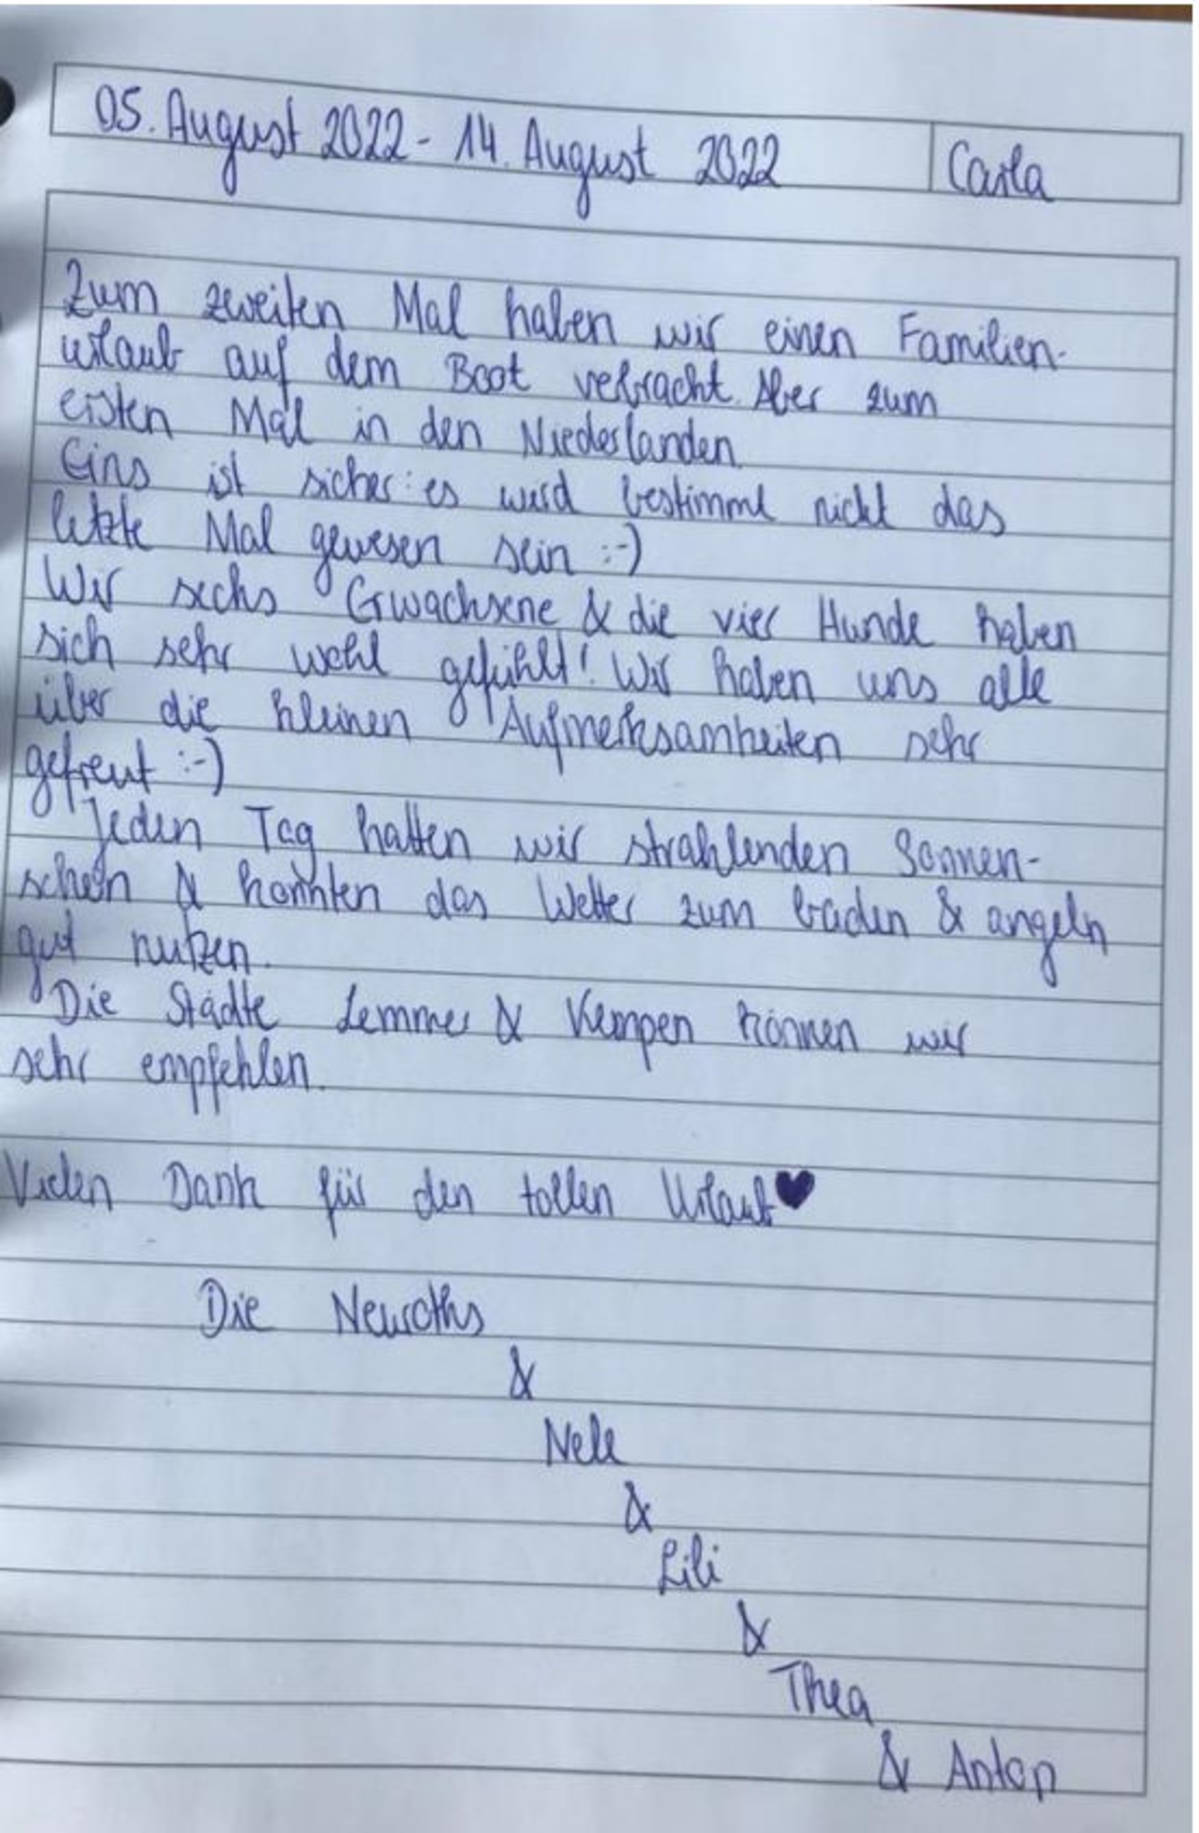 05. August 2022 - 14. August 2022 Carla
Zum zweiten Mal haben wir einen Familien-
urlaub auf dem Boot verbracht. Aber zum
ersten Mal in den Niederlanden.
Eins ist sicher: es wird bestimmt nicht das
letzte Mal gewesen sein :-)
Wir sechs Erwachsene & die vier Hunde haben
sich sehr wohl gefühlt! Wir haben uns alle
über die kleinen Aufmerksamkeiten sehr
gefreut :-)
Jeden Tag hatten wir strahlenden Sonnen-
schein & konnten das Wetter zum baden & angeln
gut nutzen.
Die Städte Lemmer & Kempen können wir
sehr empfehlen.
Vielen Dank für den tollen Urlaub ♥
Die Neuroths
&
Nele
&
Lili
&
Thea
& Anton